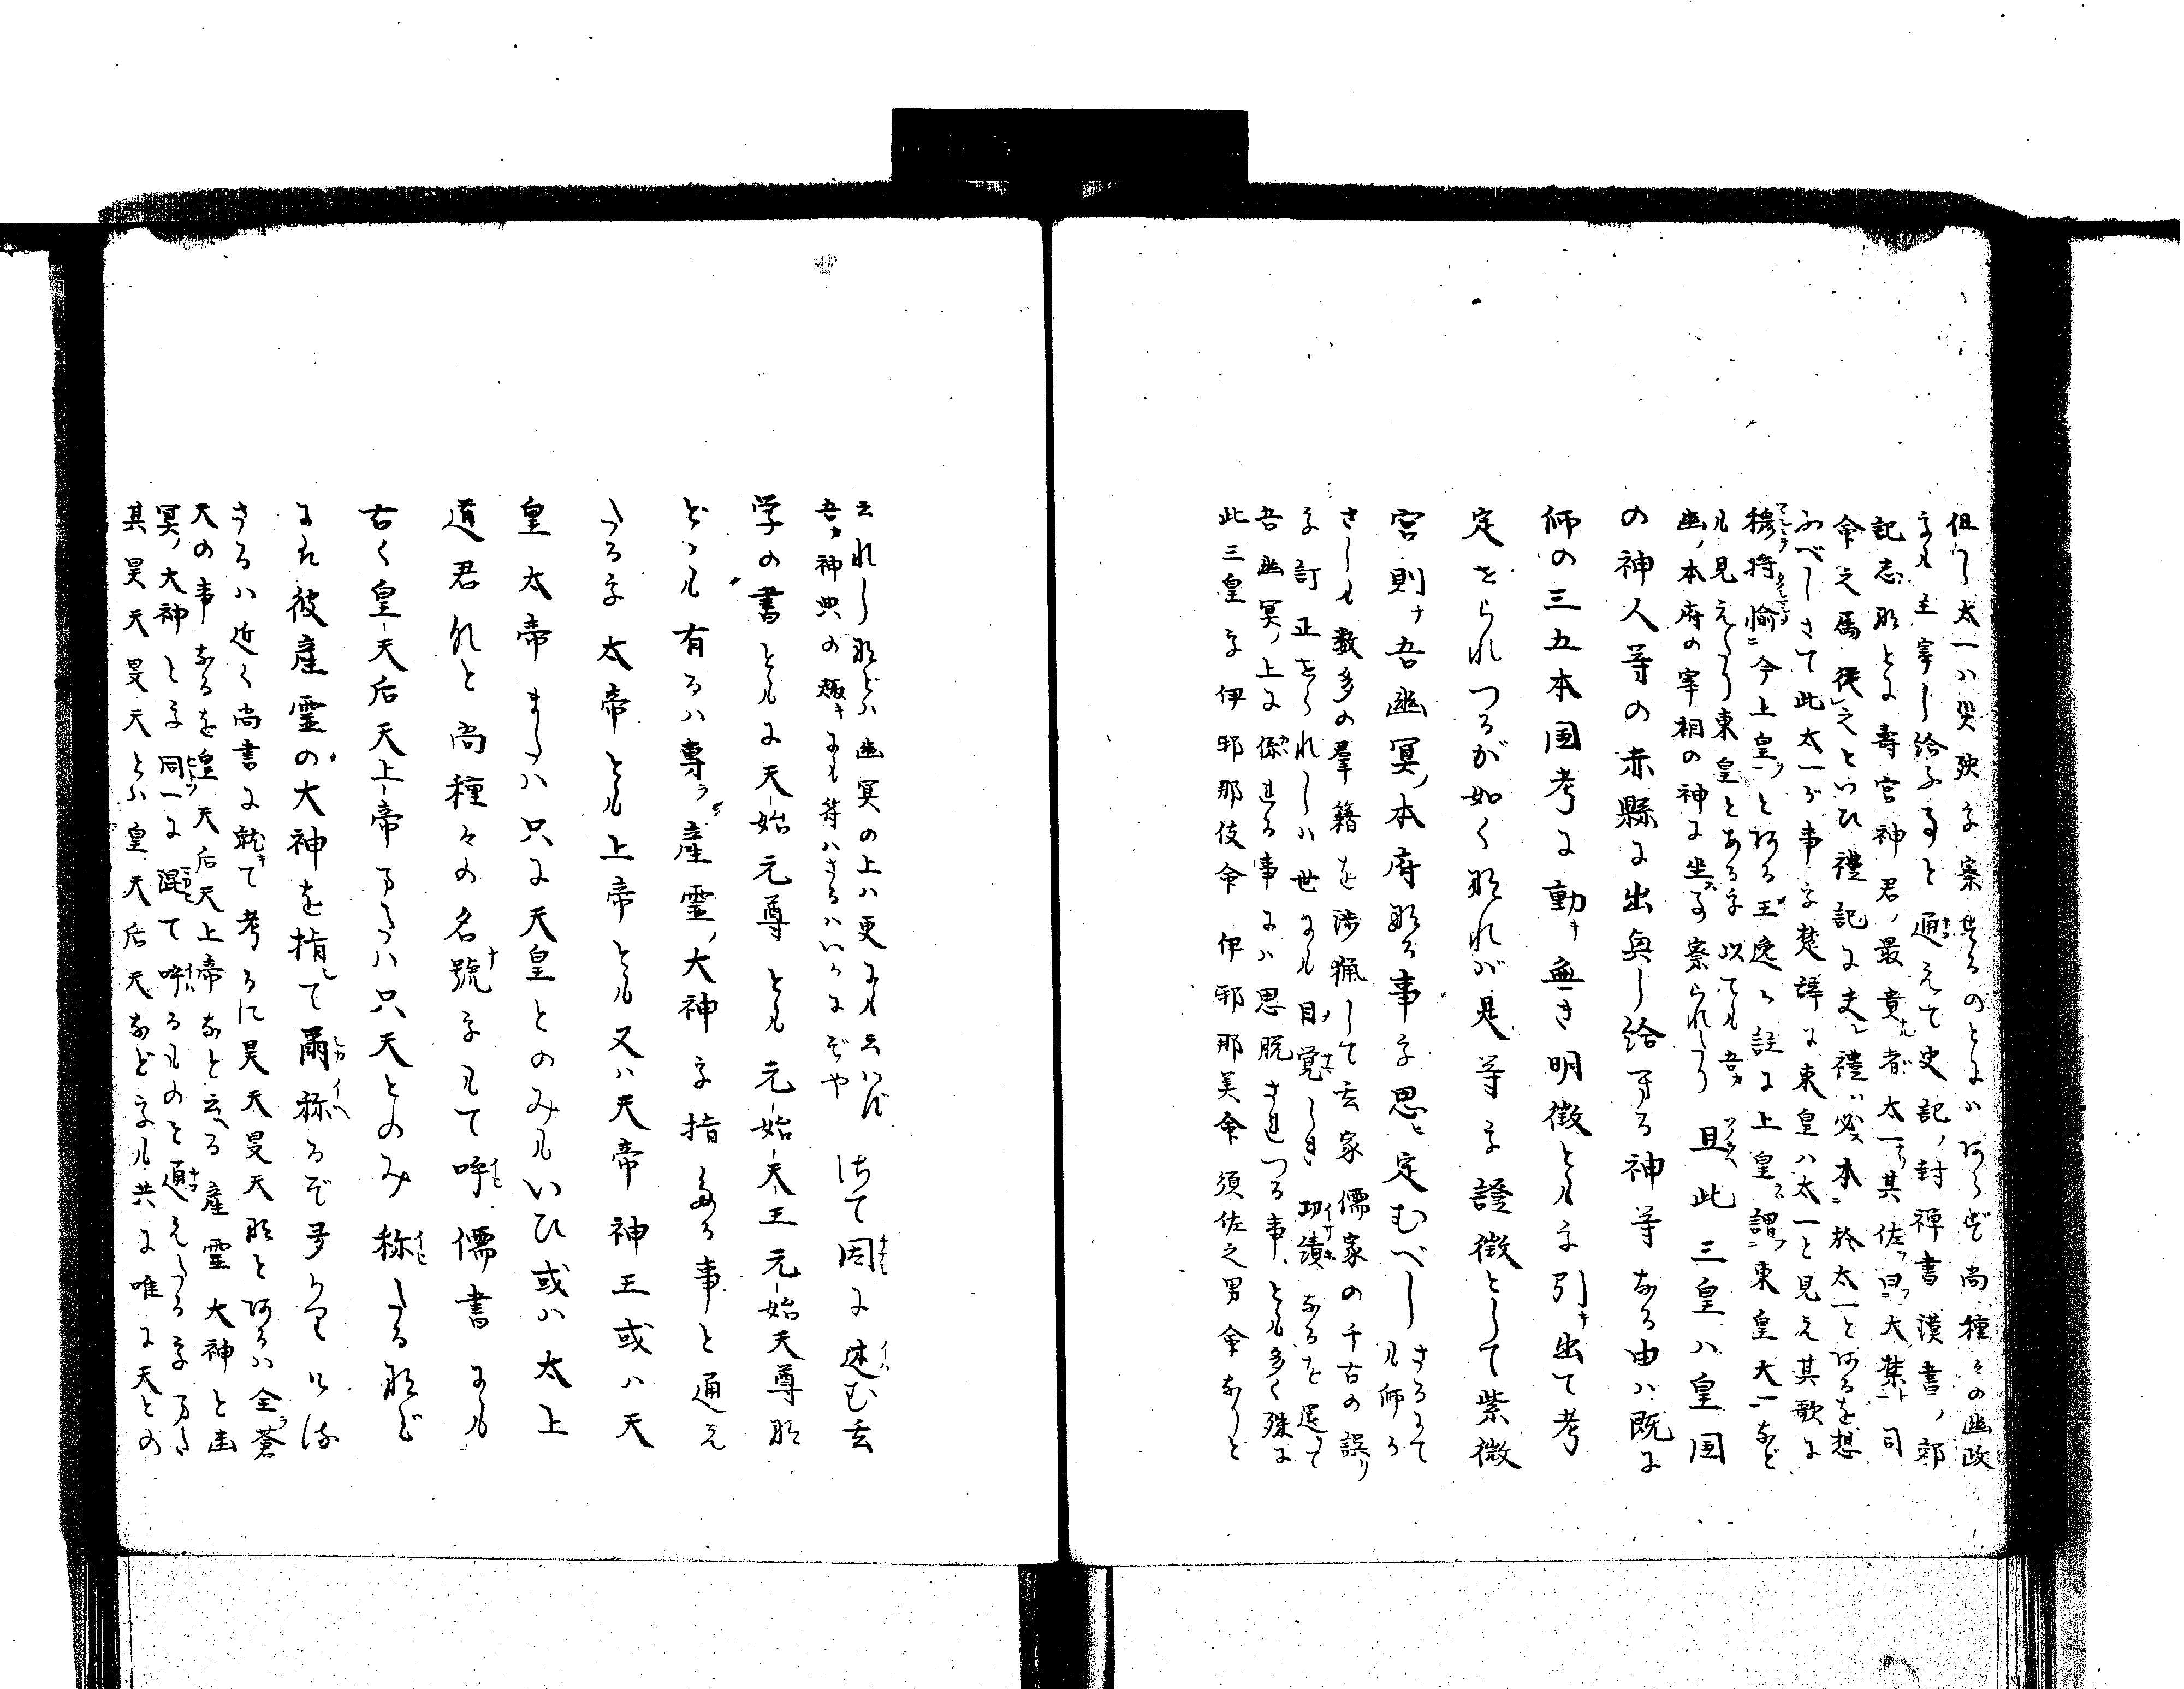 但し太一ハ災殃を察せるのとにハ阿らず尚種々の幽政
をも主宰し給ふ事と通えて史記ノ封禅書漢書ノ郊
記志那とに壽宮神君ノ最貴者太一其佐曰大禁司
命之属従之といひ禮記に夫禮ハ必本於太一と阿るを想
ふべしさて此太一が事を楚辞に東皇ハ太一と見え其歌に
穆将愉今上皇と阿る王逸の註に上皇謂東皇太一など
も見えたり東皇とあるを以ても吾
幽ノ本府の宰相の神に坐事察られたり且此三皇ハ皇国
の神人等の赤縣に出興し給する神等なる由ハ既に
師の三五本国考に動き無き明徴ともを引き出て考
定せられつるが如く那れバ是等を證徴として紫微
宮則吾幽冥ノ本府那る事を思ひ定むべしさるにて
も師の
さしも数多の羣籍を渉猟して玄家儒家の千古の誤り
を訂正せられしハ世にも目覚しき功績なるを還て
吾幽冥ノ上に係はる事にハ思脱されつる事とも多く殊に
此三皇を伊邪那伎命伊邪那美命須佐之男命なりと
云れし那どハ幽冥の上ハ更にも云ハず
吾神典の趣きにも符ハさるハいかにぞや
さて因に述む玄
学の書ともに天始元尊とも元始天王元始天尊那
どゝも有るハ専ラ産霊ノ大神を指奉る事と通え
たるを太帝とも上帝とも又ハ天帝神王或ハ天
皇太帝またハ只に天皇とのみもいひ或ハ太上
道君れと尚種々の名號をもて呼儒書にも
古く皇天后天上帝またハ只天とのみ称たる那ど
にれ彼産霊の大神を指して爾称るぞ多かりける
さるハ近く尚書に就きて考るに昊天旻天那と阿るハ全蒼
天の事なるを皇天后天上帝なと云へる産霊大神と幽
冥ノ大神とを同一に混て呼るものと通えたるを
其昊天旻天とハ皇天后天などをも共に唯に天との